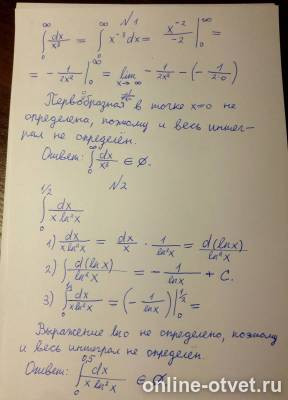 N1
∞∫0 dx/x³ = ∞∫0 x⁻³dx = x⁻²/-2 |∞0 =
= -1/2x² |∞0 = lim x→∞ -1/2x² - (-1/2·0)
Первообразная в точке x=0 не
определена, поэтому и весь интег-
рал не определён.
Ответ: ∞∫0 dx/x³ ∈ ∅.
N2
1/2∫0 dx/x ln²x
1) dx/x ln²x = dx/x · 1/ln²x = d(lnx)/ln²x
2) ∫ d(lnx)/ln²x = -1/lnx + C.
3) 1/2∫0 dx/x ln²x = (-1/lnx)|1/2 0 =
Выражение ln0 не определено, поэтому
и весь интеграл не определен.
Ответ: 0,5∫0 dx/x ln²x ∈ ∅
online-otvet.ru